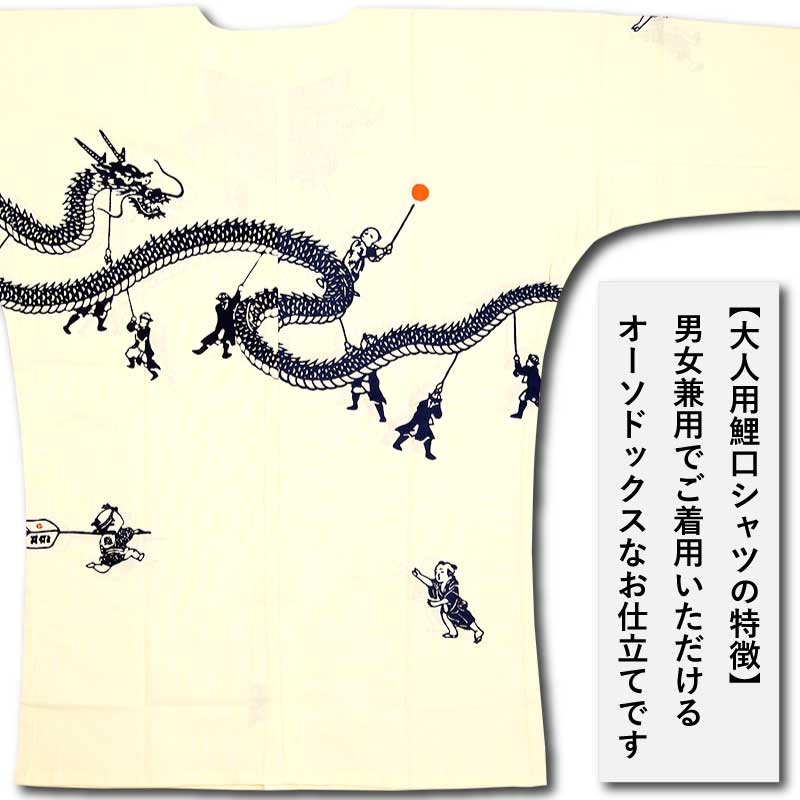 【大人用鯉口シャツの特徴】
男女兼用でご着用いただける
オーソドックスなお仕立てです